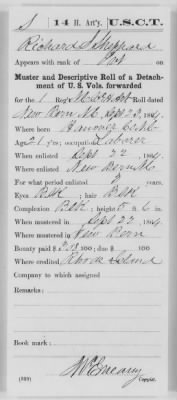 S 14 H. Art'y. U.S.C.T.
Richard Sheppard
Appears with rank of Pvt on
Muster and Descriptive Roll of a Detach-
ment of U. S. Vols. forwarded
for the 1 Reg't Roll dated
New Bern N.C. Sept 23, 1864.
Where born Hanover
Age 21 y'rs; occupation Laborer
When enlisted Sept 22, 1864.
Where enlisted New Bern N.C.
For what period enlisted 3 years.
Eyes Blk; hair Blk
Complexion Blk; height 5 ft. 6 in.
When mustered in Sept 22, 1864.
Where mustered in New Bern
Bounty paid $ 100; due $ 100
Where credited Rhode Island
Company to which assigned
Remarks:
Book mark:
(339) Copyist.